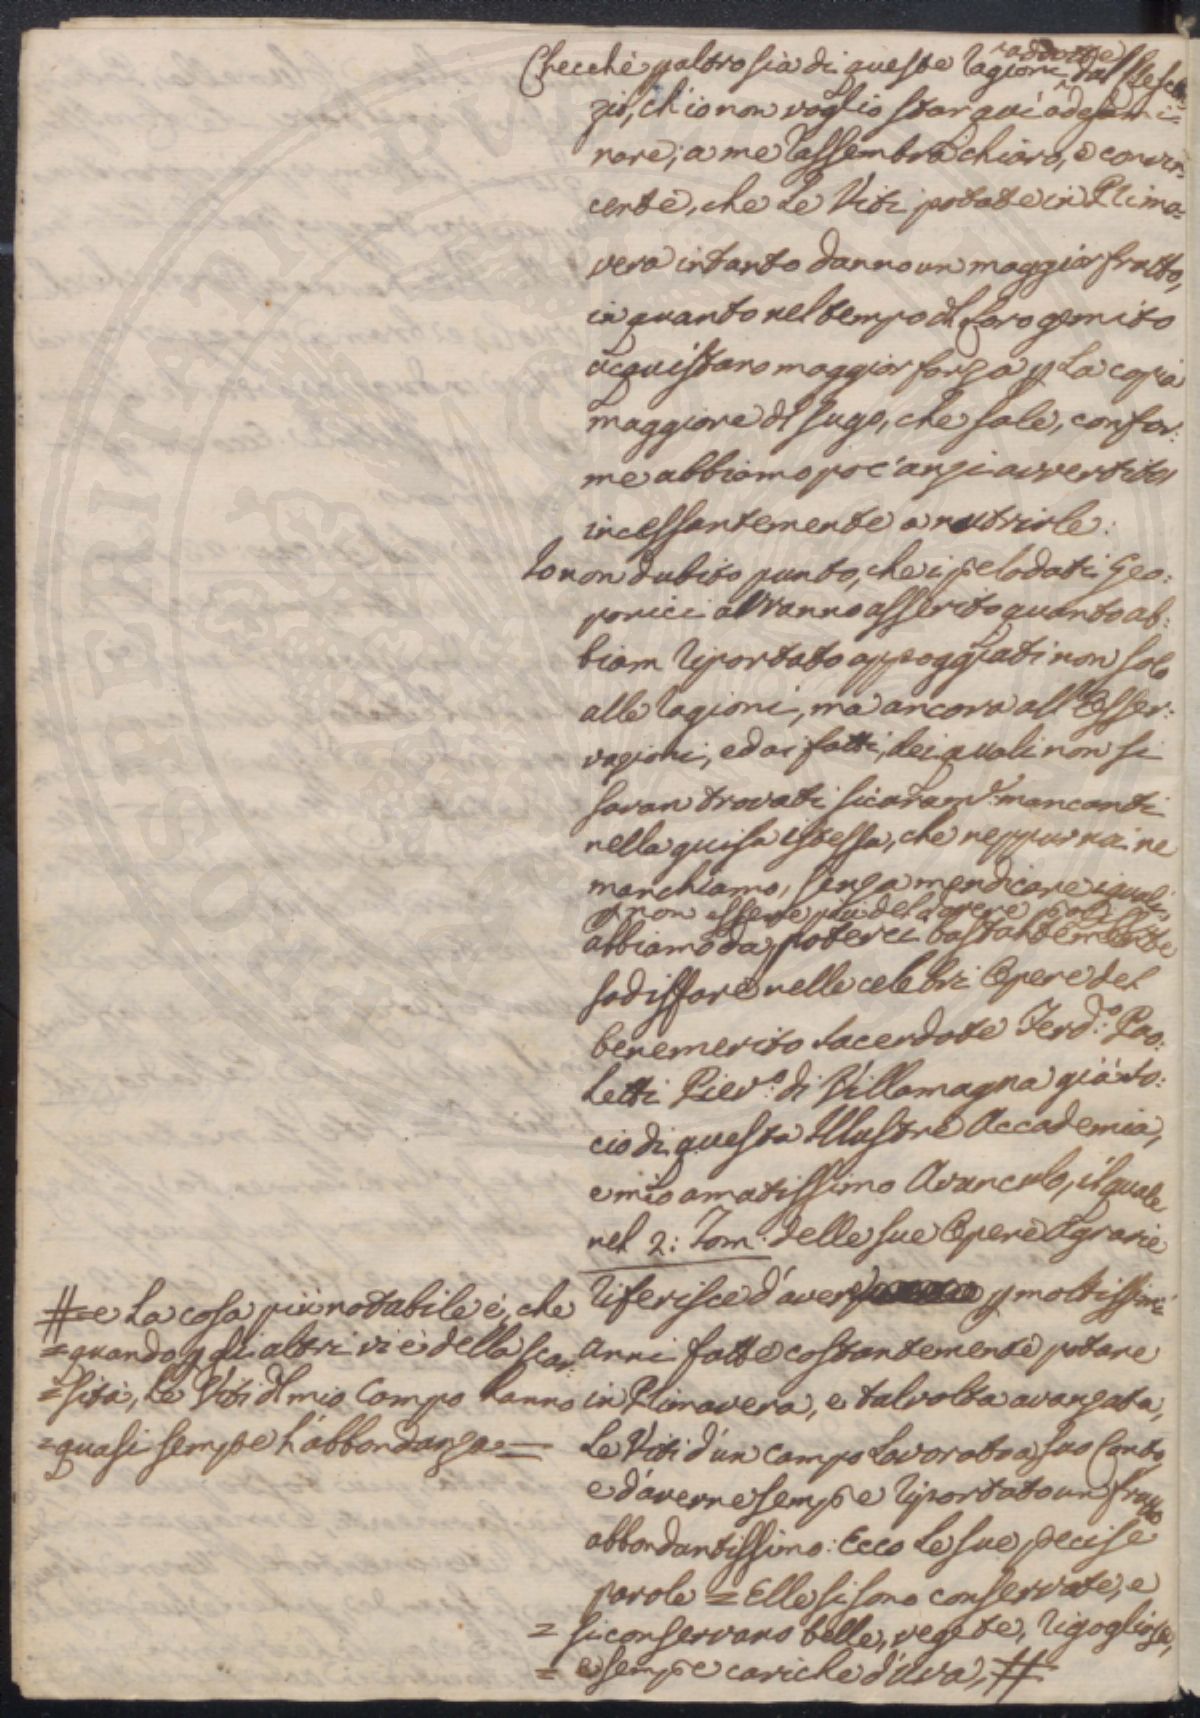 Checché p altro sia di queste ragioni addotte dal Cresce:
zio, ch'io non voglio star qui ad esami=
nare; a me rassembra chiaro, e convin:
cente, che le Viti potate in Prima=
vera intanto danno un maggior frutto,
in quanto nel tempo del loro gemito
acquistano maggior forza p la copia
maggiore del sugo, che sale, confor:
me abbiamo poc'anzi avvertito
incessantemente a nutrirle:
Io non dubito punto, che i prelodati Geo:
ponici avranno asserito quanto ab:
biam riportato appoggiati non solo
alle ragioni, ma ancora all'Osser:
vazioni, ed ai fatti, dei quali non si
saran trovati sicuram.e mancanti
nella guisa istessa, che neppur noi ne
manchiamo, senza mendicare i quali,
p non essere più del dovere
abbiamo da poterci bastantemente
sodisfare nelle celebri Opere del
benemerito Sacerdote Ferd.o Pao:
letti Piev.o di Villamagna già So:
cio di questa Illustre Accademia,
e mio amatissimo Avunculo, il quale
nel 2: Tom: delle sue Opere Agrarie
riferisce d'aver p moltissimi
Anni fatte costantemente potare
in Primavera, e talvolta avanzata,
le Viti d'un campo lavorato a suo Conto,
e d'averne sempre riportato un frutto
abbondantissimo: Ecco le sue precise
parole = Elle si sono conservate, e
= si conservano belle, vegete, rigogliose,
= e sempre cariche d'uva, #
#= e la cosa più notabile è, che
= quando p gli altri vi è della scar:
= sità, le Viti del mio Campo hanno
= quasi sempre l'abbondanza =